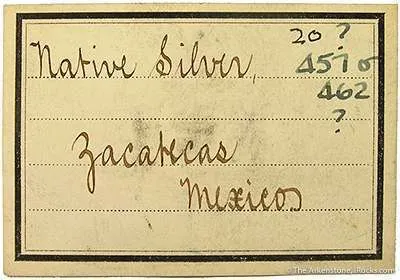 20 ?
Native Silver, 457 or
462
?
Zacatecas
Mexico
The Arkenstone, iRocks.com